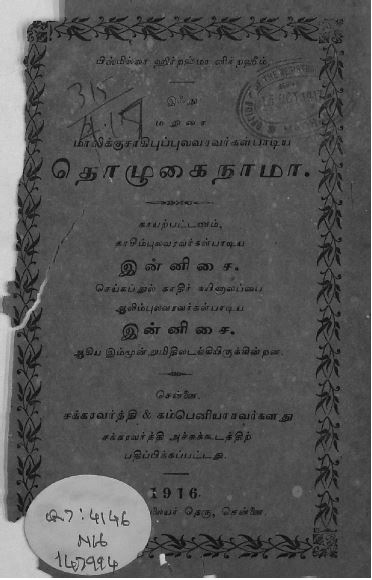 பிஸ்மில்லா ஹிர்றஹ்மா னிர்றஹீம்.
315
A:19
இஃது
மதுரை
மாலிக்குசாகிபுப்புலவரவர்கள்பாடிய
தொழுகைநாமா.
காயற்பட்டணம்,
காசிம்புலவரவர்கள்பாடிய
இன்னிசை.
செய்கப்துல் காதிர் நயினாலெப்பை
ஆலிம்புலவரவர்கள்பாடிய
இன்னிசை.
ஆகிய இம்மூன்றுமிதிலடங்கியிருக்கின்றன.
சென்னை.
சக்கரவர்த்தி & கம்பெனியாரவர்களது
சக்கரவர்த்தி அச்சுக்கூடத்திற்
பதிப்பிக்கப்பட்டது.
1916.
தெரு, சென்னை.
:4146
N16
147994